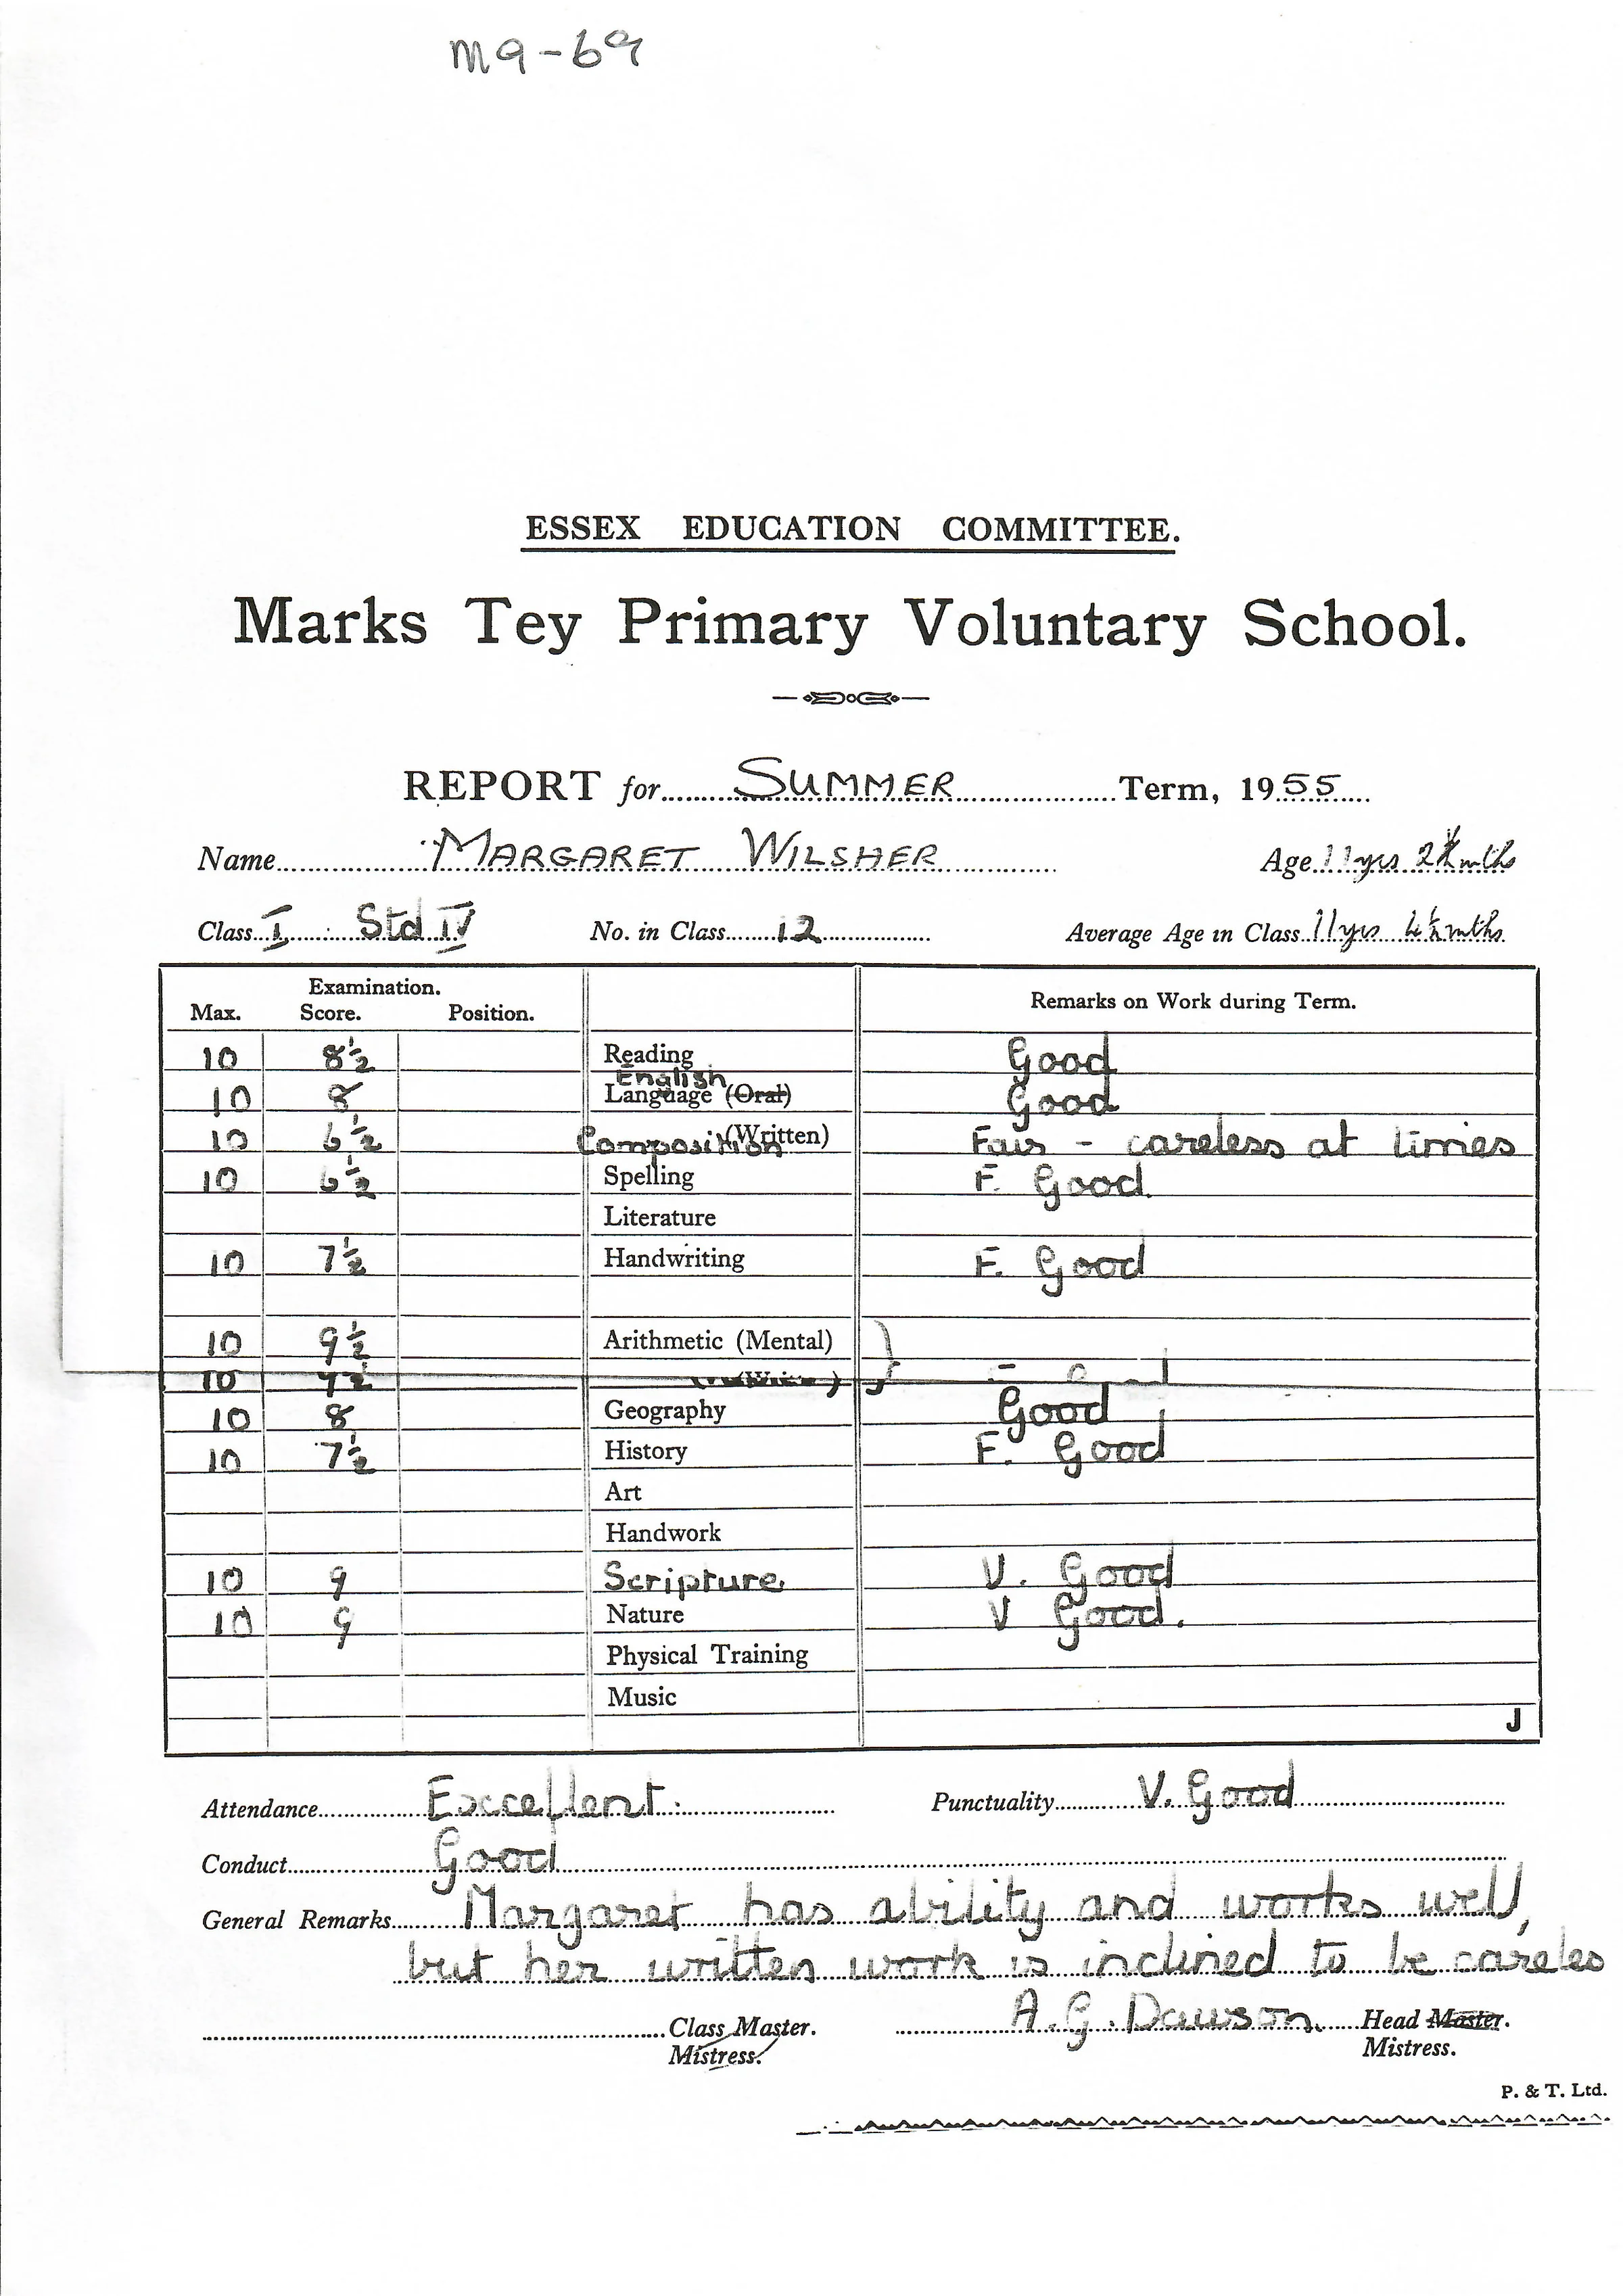 M9-69
ESSEX EDUCATION COMMITTEE.
Marks Tey Primary Voluntary School.
REPORT for SUMMER Term, 1955
Name MARGARET WILSHER Age 11 yrs mths
Class I Std IV No. in Class 12 Average Age in Class 11 yrs mths
Examination. Remarks on Work during Term.
Max. Score. Position.
10 8½ Reading Good
English
10 8 Language (Oral) Good
10 6½ Composition (Written) Fair - careless at times
10 6½ Spelling F. Good.
Literature
10 7½ Handwriting F. Good
10 9½ Arithmetic (Mental)
10
10 8 Geography Good
10 7½ History F. Good
Art
Handwork
10 9 Scripture V. Good
10 9 Nature V Good.
Physical Training
Music
J
Attendance Excellent. Punctuality V. Good
Conduct Good
General Remarks Margaret has ability and works well,
but her written work is inclined to be careles
Class Master. A. G. Dawson. Head Master.
Mistress. Mistress.
P. & T. Ltd.